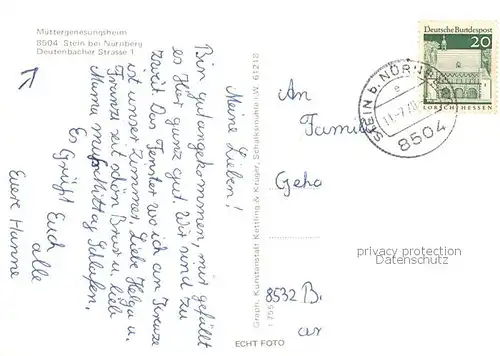 Müttergenesungsheim
8504 Stein bei Nürnberg
Deutenbacher Strasse 1
Meine Lieben!
Bin gut angekommen, mir gefällt
es hier ganz gut. Wir sind zu
zweit. Das Fenster wo ich an Kreuze
ist unser Zimmer. Liebe Helga u.
Franzl seit schön Brav u. lieb
Mama muß Mittag Schlafen.
Es Grüßt Euch
alle
Euere Hanne
Graph. Kunstanstalt Kettling & Krüger, Schalksmühle i.W. 61218
1755
ECHT FOTO
An
Famili
Geho
8532 B.
Deutsche Bundespost
20
LORSCH HESSEN
STEIN b. NÜRNB
e
8504
privacy protection
Datenschutz